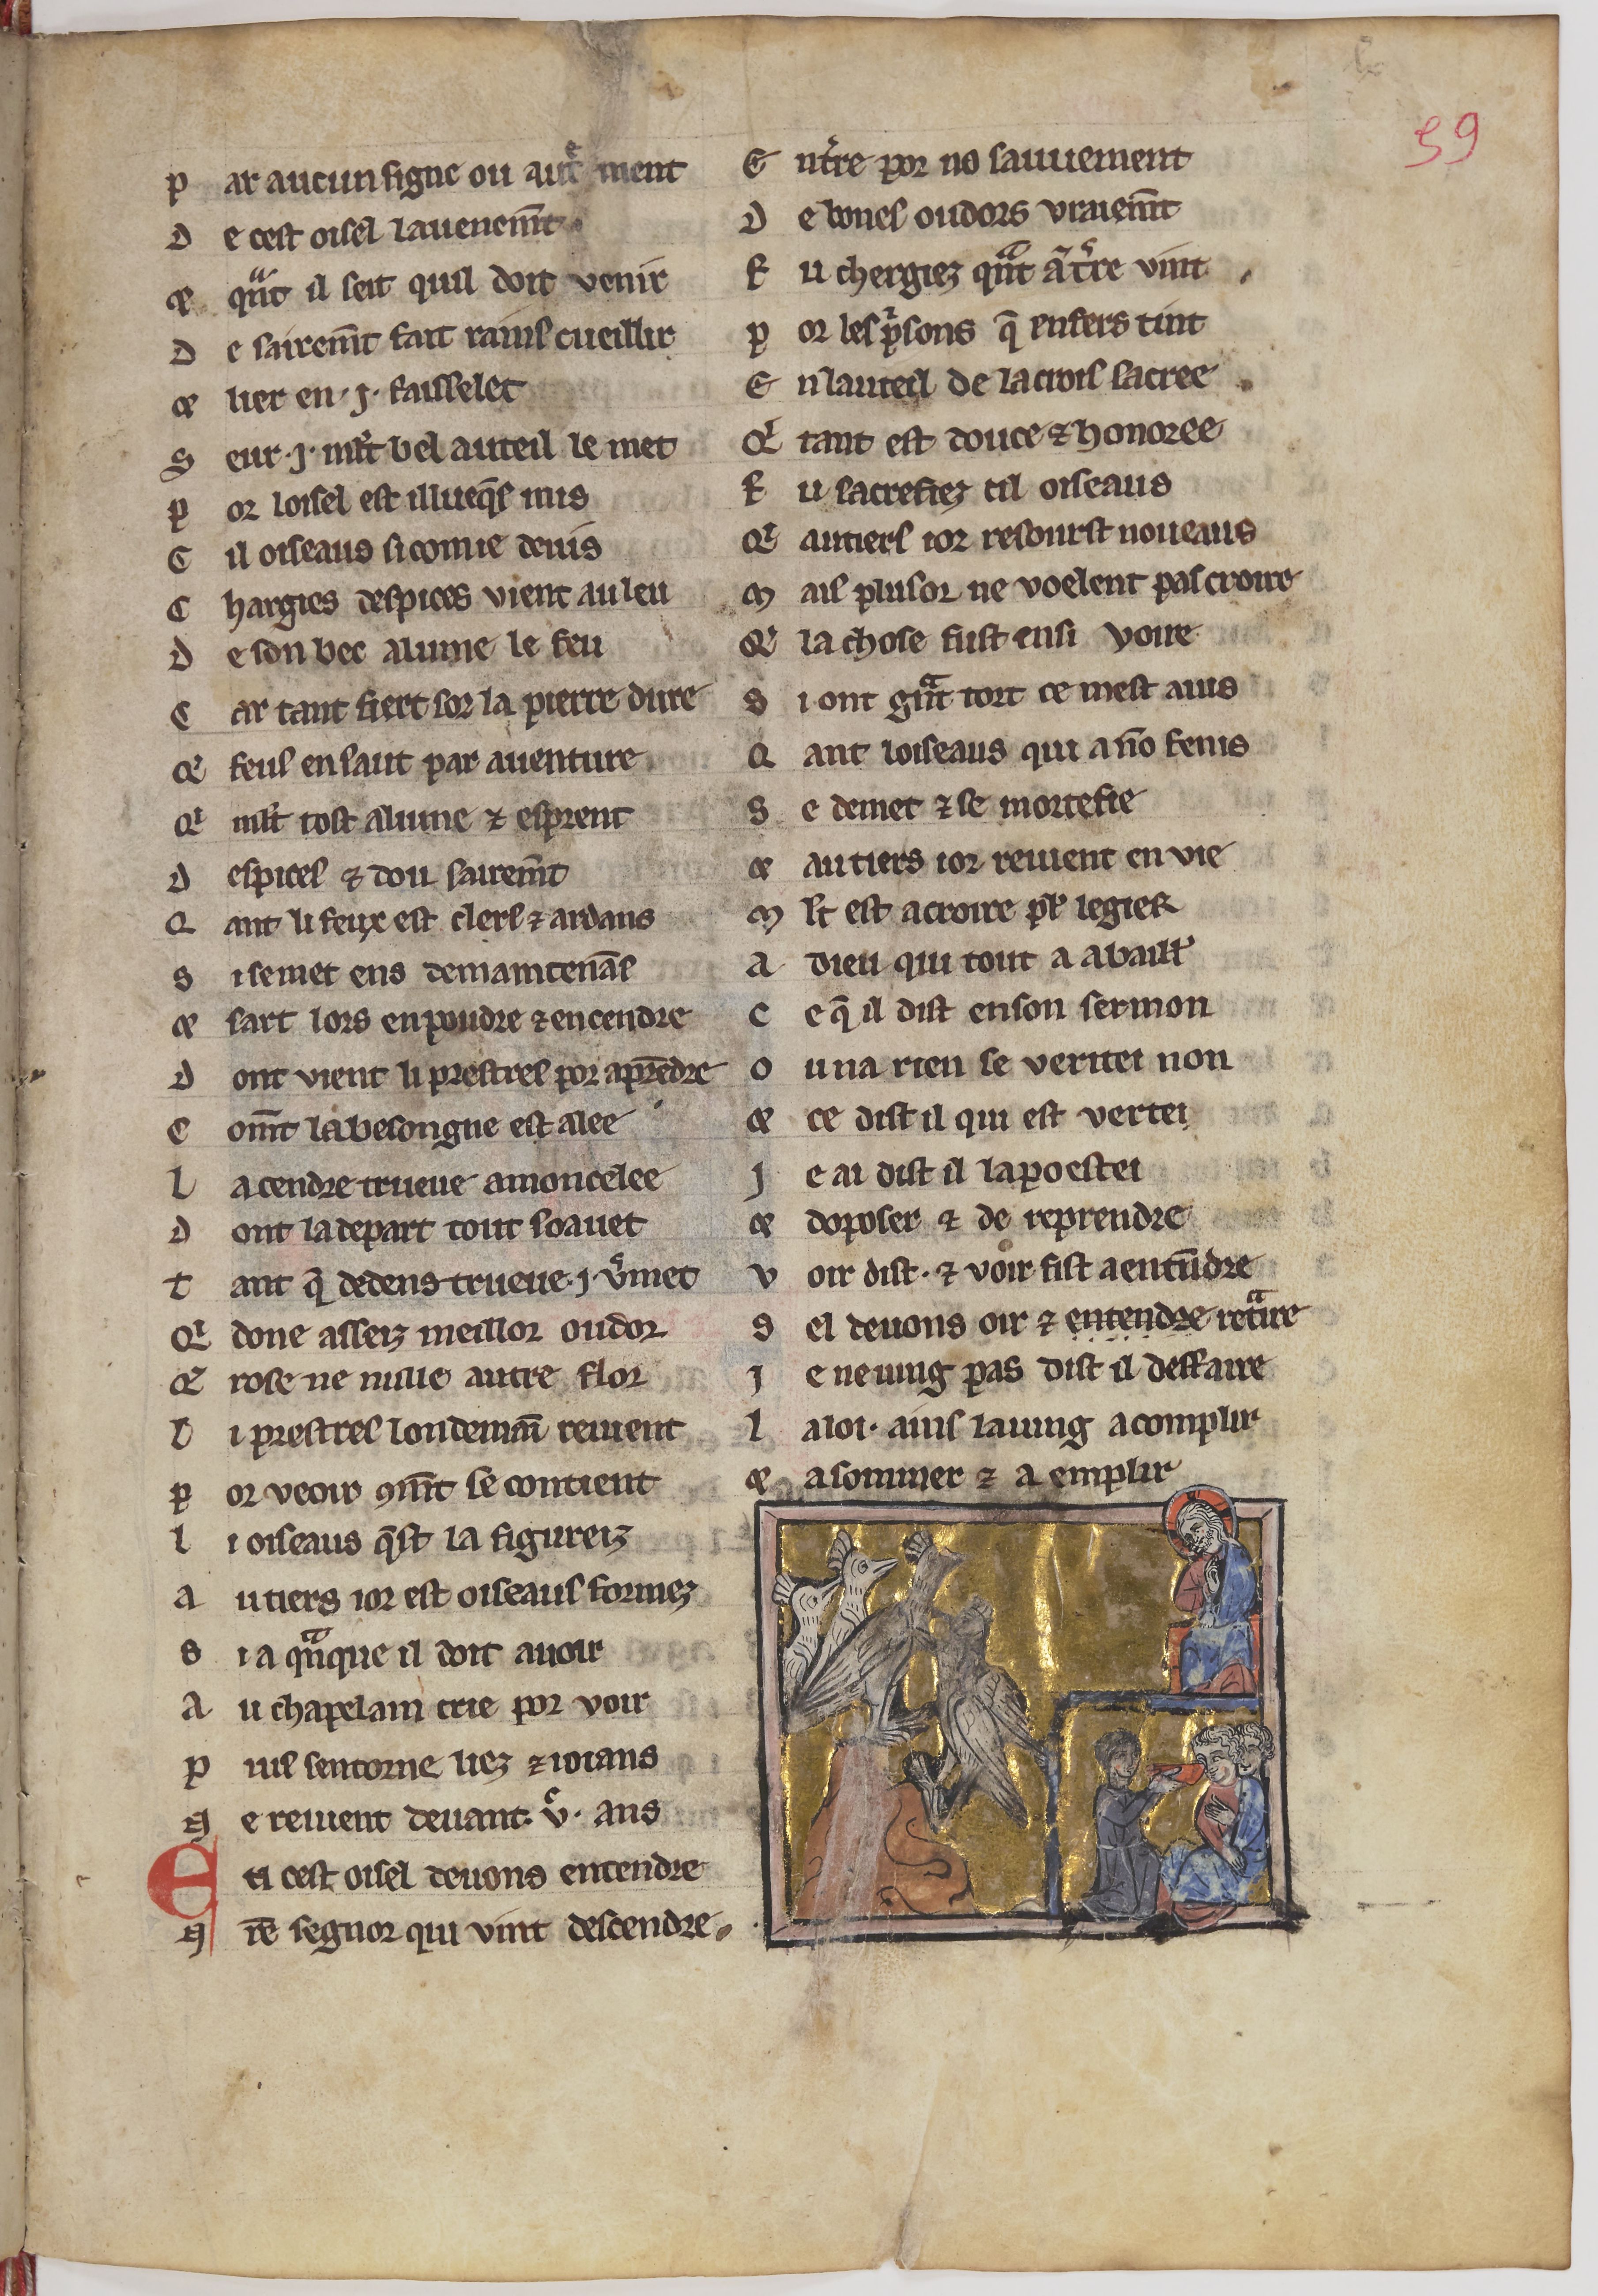 59
P ar aucun signe ou autͤ ment
D e cest oisel lauenem̅t
Et qu̅t il seit quil doit venir
D e sairem̅t fait rains cueillir
Et lier en .j. faisselet
S eur .j. ml̅t bel auteil le met
P or loisel est illueq̅s mis
C il oiseaus si comme deuis
C hargies despices vient au leu
D e son bec alume le feu
C ar tant fiert sor la pierre dure
Q̉ feus en saut par auenture
Q̉ ml̅t tost alume ⁊ esprent
D espices ⁊ dou sairem̅t
Q ant li feux est clers ⁊ ardans
S i se met ens demaintena̅s
Et sart lors en poudre ⁊ en cendre
D ont vient li prestres por apre̅dre
C om̅t la besongne est alee
L a cendre trueue amoncelee
D ont la depart tout soauet
T ant q̅ dedens trueue .j. v̾met
Q̉ done asseiz meillor oudor
Q̉ rose ne nulle autre flor
L i prestres londemai̅ reuient
P or veoir ꝯm̅t se contient
L i oiseaus q̅st la figureiz
A u tiers ior est oiseaus formez
S i a qu̅que il doit auoir
A u chapelain crie por voir
P uis sentorne liez ⁊ ioians
N e reuient deuant .v.ͨ ans
E n cest oisel deuons entendre
N re̅ segnor qui vint descendre
E n tr̾re por no sauuement
D e bones oudors vraiem̅t
F u chergiez qu̅t a̅ t̾re vint
P or les p̾sons q̅ enfers tint
E n lauteil de la crois sacree
Q̉ tant est douce ⁊ honoree
F u sacrefiez cil oiseaus
Q̉ au tiers ior resourst noueaus
M ais plusor ne voelent pas croire
Q̉ la chose fust ensi voire
S i ont gu̅t tort ce mest auis
Q ant loiseaus qui a no̅ fenis
S e demet ⁊ se mortefie
Et au tiers ior reuient en vie
M lt est a croire pl̾ legier
A dieu qui tout a a baill̾
C e q̅ il dist en son sermon
O u na rien se veritei non
Et ce dist il qui est vertei
J e ai dist il la poestei
Et doposer ⁊ de reprendre
V oir dist . ⁊ voir fist a ente̅dre
S el deuons oir ⁊ entendre retͣire
J e ne uing pas dist il deffaire
L a loi . ains la uing acomplir
Et a sommer ⁊ a emplir